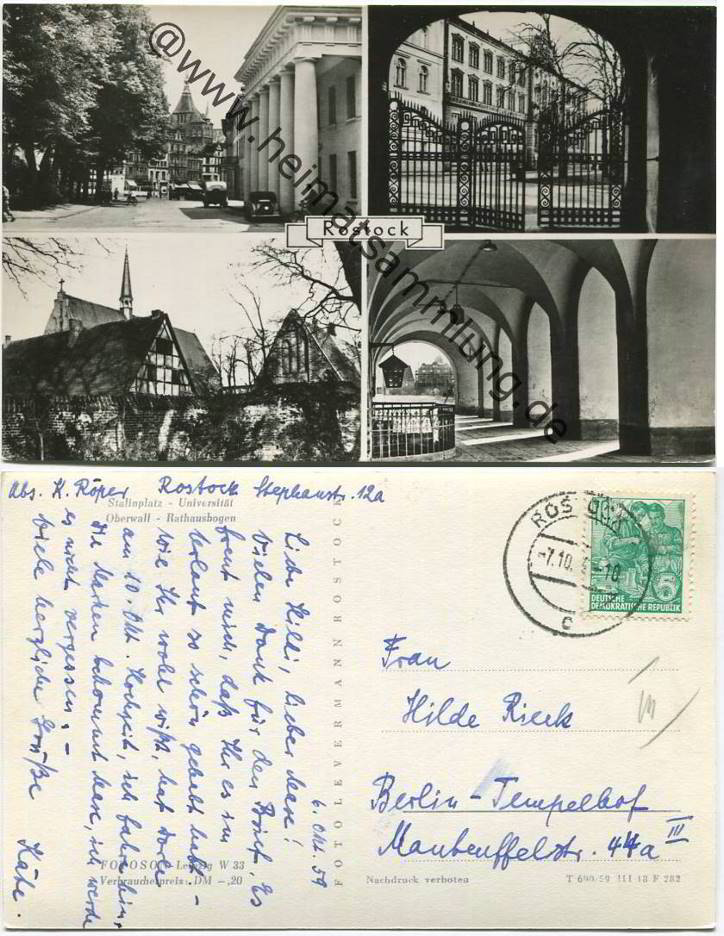 @www.heimatsammlung.de
Rostock
Abs. K. Röper Rostock Stephanstr. 12a
Stalinplatz - Universität
Oberwall - Rathausbogen
6. Okt. 59
Liebe Hilde, lieber
Vielen Dank für den Brief. Es
freut mich, daß Ihr es im
Urlaub so schön gehabt habt. -
Wie Ihr wohl wißt, hat
am 10. Okt. Hochzeit, ich fahre hin.
Die Marken bekommt, ich werde
es nicht vergessen. -
Viele herzliche Grüße
Käte.
FOTO LEVERMANN ROSTOCK
ROSTOCK
-7.10.
c
5
DEUTSCHE
DEMOKRATISCHE REPUBLIK
Frau
Hilde Rieck
Berlin-Tempelhof
Manteuffelstr. 44a III
FOTOSO Leipzig W 33
Verbraucherpreis: DM -,20
Nachdruck verboten
T 690/59 III 18 F 282